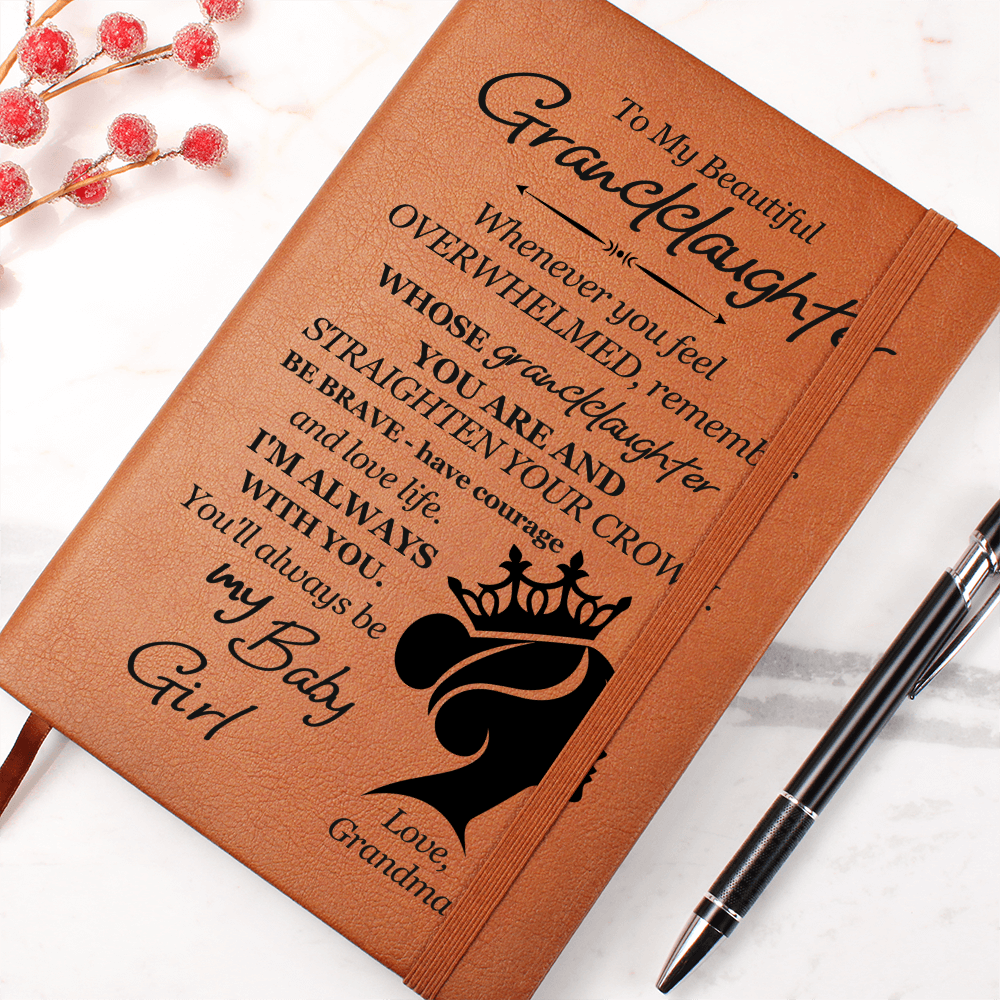 To My Beautiful
Granddaughter
Whenever you feel
OVERWHELMED, rememb
WHOSE granddaughter
YOU ARE AND
STRAIGHTEN YOUR CROW
BE BRAVE - have courage
and love life.
I'M ALWAYS
WITH YOU.
You'll always be
my Baby
Girl
Love,
Grandma